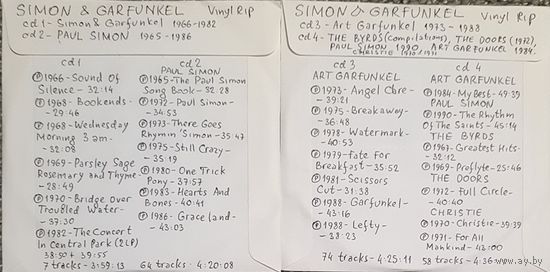 SIMON & GARFUNKEL Vinyl Rip
cd1- Simon & Garfunkel 1966-1982
cd2- PAUL SIMON 1965-1986
cd1
℗1966-Sound Of
Silence - 32:14
℗1968-Bookends-
-29:46
℗1968-Wednesday
Morning 3am-
-32:08
℗1969-Parsley Sage
Rosemary and Thyme-
-28:49
℗1970-Bridge Over
Troubled Water-
-37:30
℗1982-The Concert
In Central Park (2LP)
38:50 + 39:55
7 tracks - 3:59:13
cd2
PAUL SIMON
℗1965-The Paul Simon
Song Book - 32:28
℗1972-Paul Simon-
-34:53
℗1973-There Goes
Rhymin' Simon-35:47
℗1975-Still Crazy-
-35:19
℗1980-One Trick
Pony-37:57
℗1983-Hearts And
Bones-40:41
℗1986-Graceland-
-43:03
64 tracks - 4:20:08
SIMON & GARFUNKEL Vinyl Rip
cd3- Art Garfunkel 1973-1988
cd4- THE BYRDS (compilations), THE DOORS (1972),
PAUL SIMON 1990, ART GARFUNKEL 1984.
CHRISTIE 1970/1971
cd3
ART GARFUNKEL
℗1973-Angel Clare-
-39:21
℗1975-Breakaway-
-36:48
℗1978-Watermark-
-40:53
℗1979-Fate For
Breakfast-35:52
℗1981-Scissors
Cut-31:38
℗1988-Garfunkel-
-43:16
℗1988-Lefty-
-38:23
74 tracks - 4:25:11
cd4
ART GARFUNKEL
℗1984-My Best-49:39
PAUL SIMON
℗1990-The Rhythm
Of The Saints-45:14
THE BYRDS
℗1967-Greatest Hits-
-32:12
℗1969-Preflyte-25:46
THE DOORS
℗1972-Full Circle-
-40:40
CHRISTIE
℗1970-Christie-39:39
℗1971-For All
Mankind-43:00
58 tracks - 4:36
www.ay.by